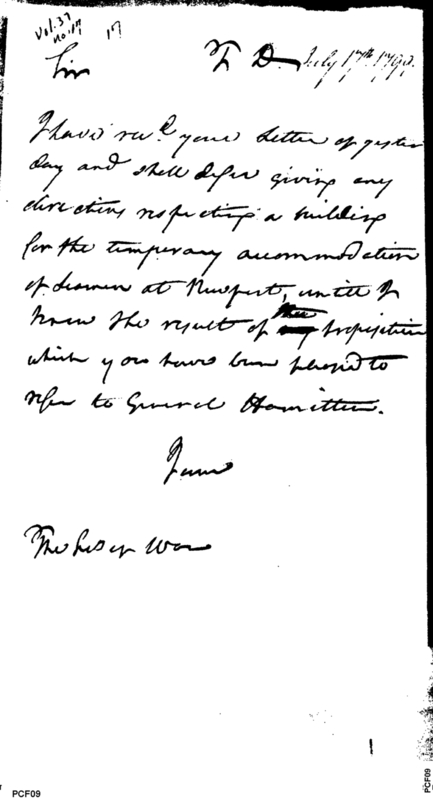 Vol. 37
no. 17
17
Sir
T D July 17th 1799.
I have recd. your Letter of yester
day and shall defer giving any
directions respecting a building
for the temporary accommodation
of Seamen at Newport, untill I
know the result of the proposition
which you have been pleased to
refer to General Hamilton.
I am
The Sec of War
PCF09
PCF09